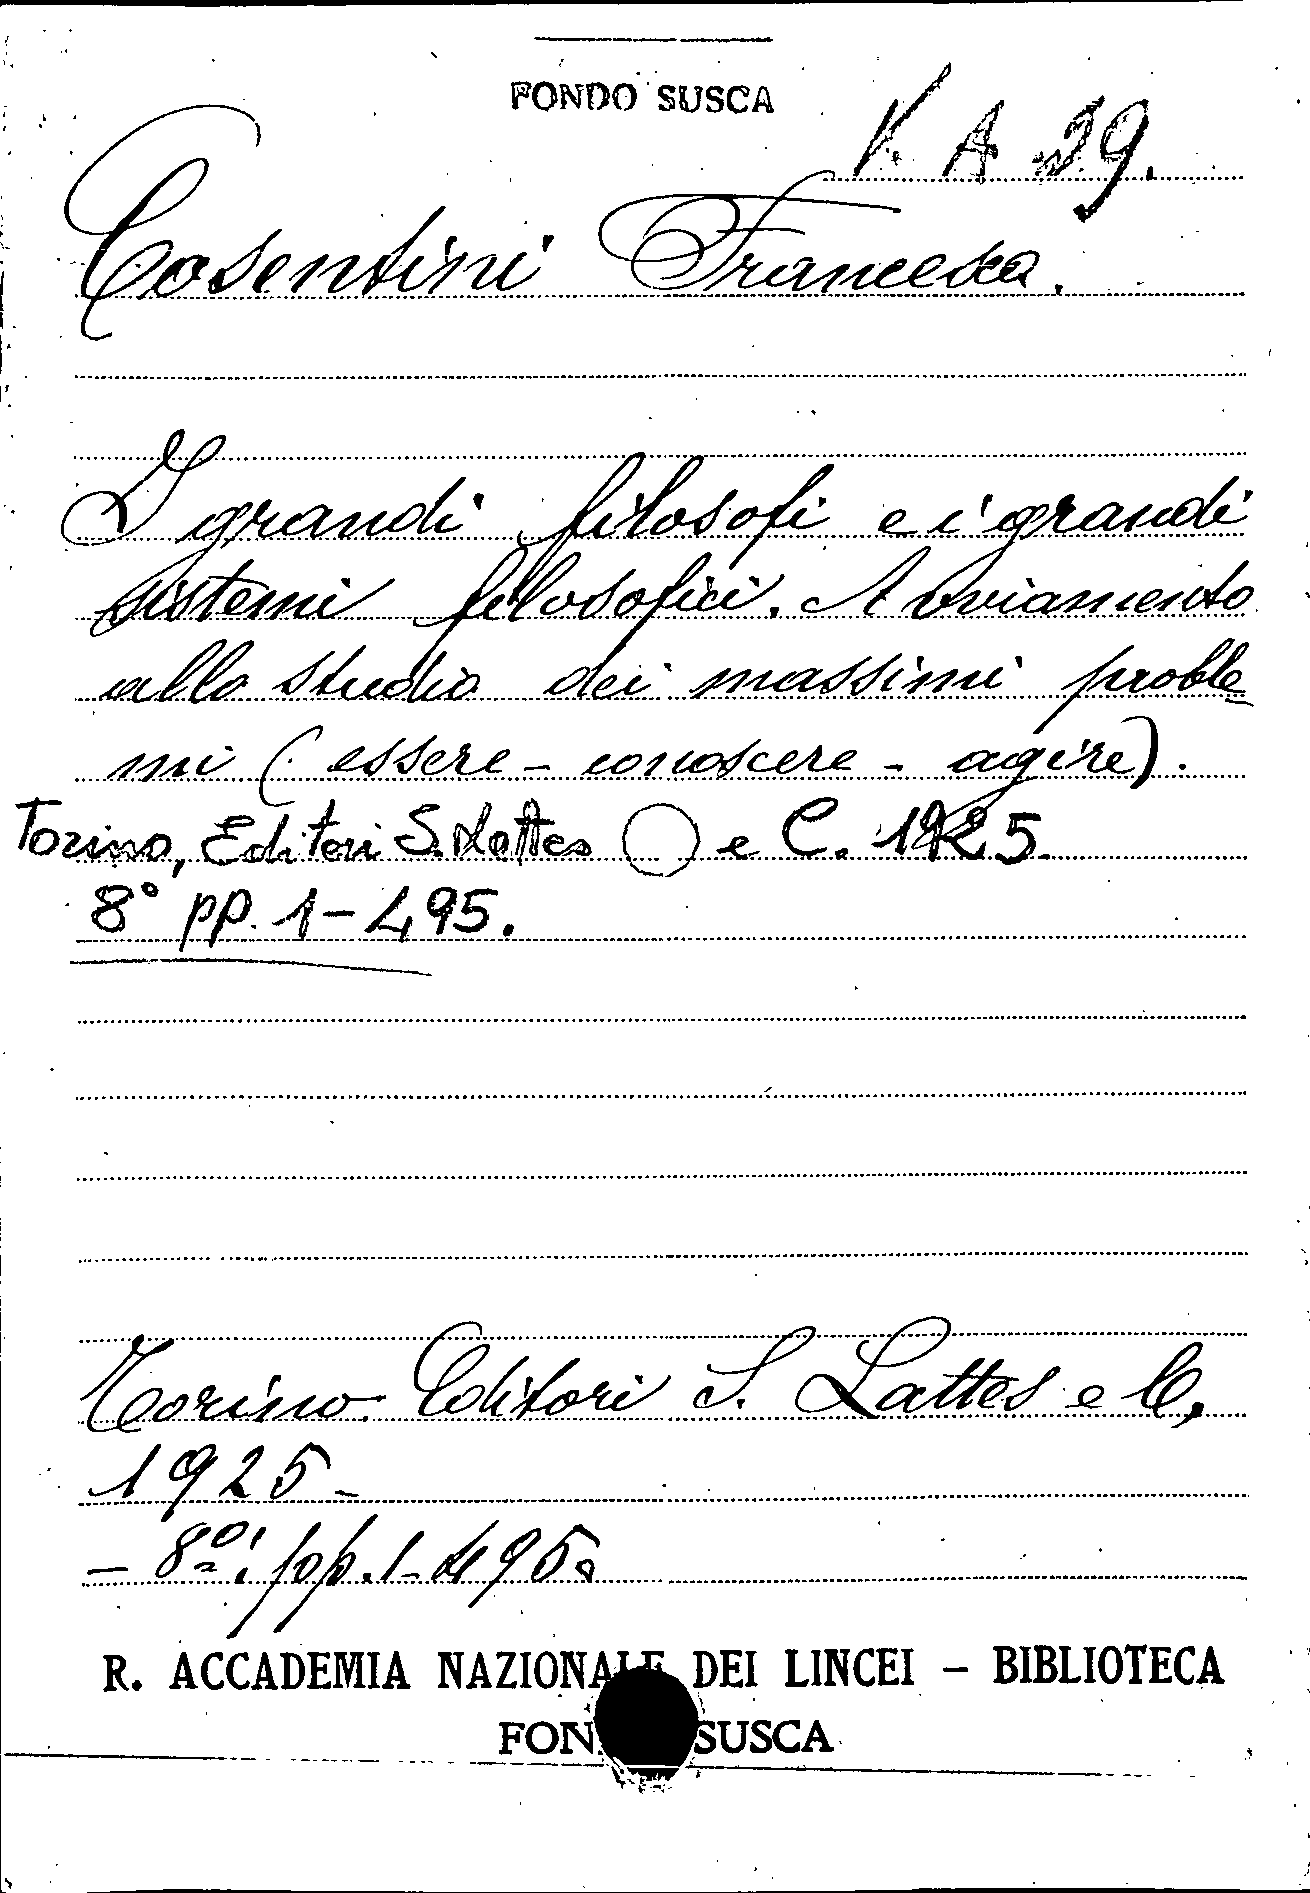 FONDO SUSCA
V. A 29.
Cosentini Francesco.
I grandi filosofi e i grandi
sistemi filosofici. Avviamento
allo studio dei massimi proble
mi (essere - conoscere - agire).
Torino, Editori S. Lattes e C. 1925.
8° pp. 1-495.
Torino. Editori S. Lattes e C.
1925 -
- 8º: pp. 1-495.
R. ACCADEMIA NAZIONALE DEI LINCEI - BIBLIOTECA
FON SUSCA